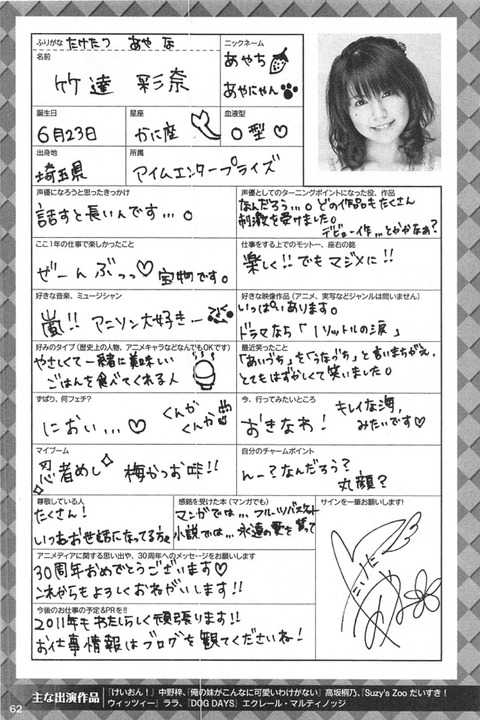 ふりがな たけたつ あやな
ニックネーム
あやち
あやにゃん
名前
竹達 彩奈
誕生日
6月23日
星座
かに座
血液型
O型♡
出身地
埼玉県
所属
アイムエンタープライズ
声優になろうと思ったきっかけ
話すと長いんです...。
声優としてのターニングポイントになった役、作品
なんだろう...。どの作品もたくさん
刺激を受けました。
デビュー作...とかかなぁ?
ここ1年の仕事で楽しかったこと
ぜーんぶっっ♡宝物です。
仕事をする上でのモットー、座右の銘
楽しく!!でもマジメに!!
好きな音楽、ミュージシャン
嵐!! アニソン大好きー
好きな映像作品(アニメ、実写などジャンルは問いません)
いっぱいあります。
ドラマなら「1リットルの涙」
好みのタイプ(歴史上の人物、アニメキャラなどなんでもOKです)
やさしくて一緒に美味しい
ごはんを食べてくれる人
最近笑ったこと
「あいづち」を「うなづち」と言いまちがえ、
とてもはずかしくて笑いました。
ずばり、何フェチ?
におい...♡
くんか
くんか
今、行ってみたいところ
おきなわ!
キレイな海,
みたいです♡
マイブーム
忍者めし
梅かつお味!!
自分のチャームポイント
んー?なんだろう?
丸顔?
尊敬している人
たくさん!
いつもお世話になってる方々
感銘を受けた本(マンガでも)
マンガでは...フルーツバスケット
小説では...永遠の愛を誓って
サインを一筆お願いします!
アニメディアに関する思い出や、30周年へのメッセージをお願いします
30周年おめでとうございます♡
これからもよろしくおねがいします!!
今後のお仕事の予定&PRを!!
2011年もわたしらしく頑張ります!!
お仕事情報はブログを観てくださいね!
主な出演作品
『けいおん!』中野梓、『俺の妹がこんなに可愛いわけがない』高坂桐乃、『Suzy's Zoo だいすき!
ウィッツィー』ララ、『DOG DAYS』エクレール・マルティノッジ
62